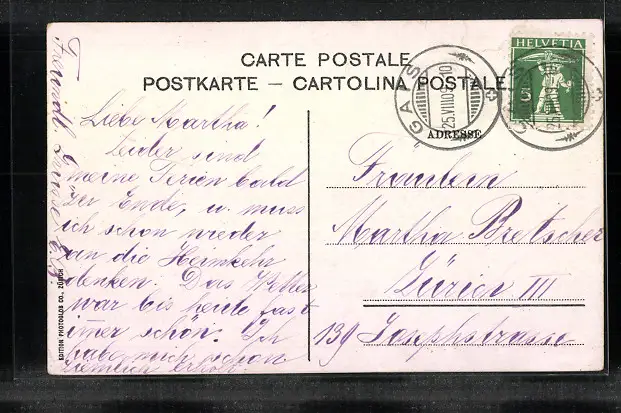 CARTE POSTALE
POSTKARTE — CARTOLINA POSTALE
HELVETIA
5
GAIS
25.VIII.09
10
ADRESSE
Liebe Martha!
Leider sind
meine Ferien bald
zu Ende, u. muss
ich schon wieder
an die Heimkehr
denken. Das Wetter
war bis heute fast
imer schön. Ich
habe mich schon
ziemlich erholt.
Freundl. Grüsse
Fräulein
Martha Bretscher
Zürich III
139 Josephstrasse
EDITION PHOTOGLOB CO., ZÜRICH